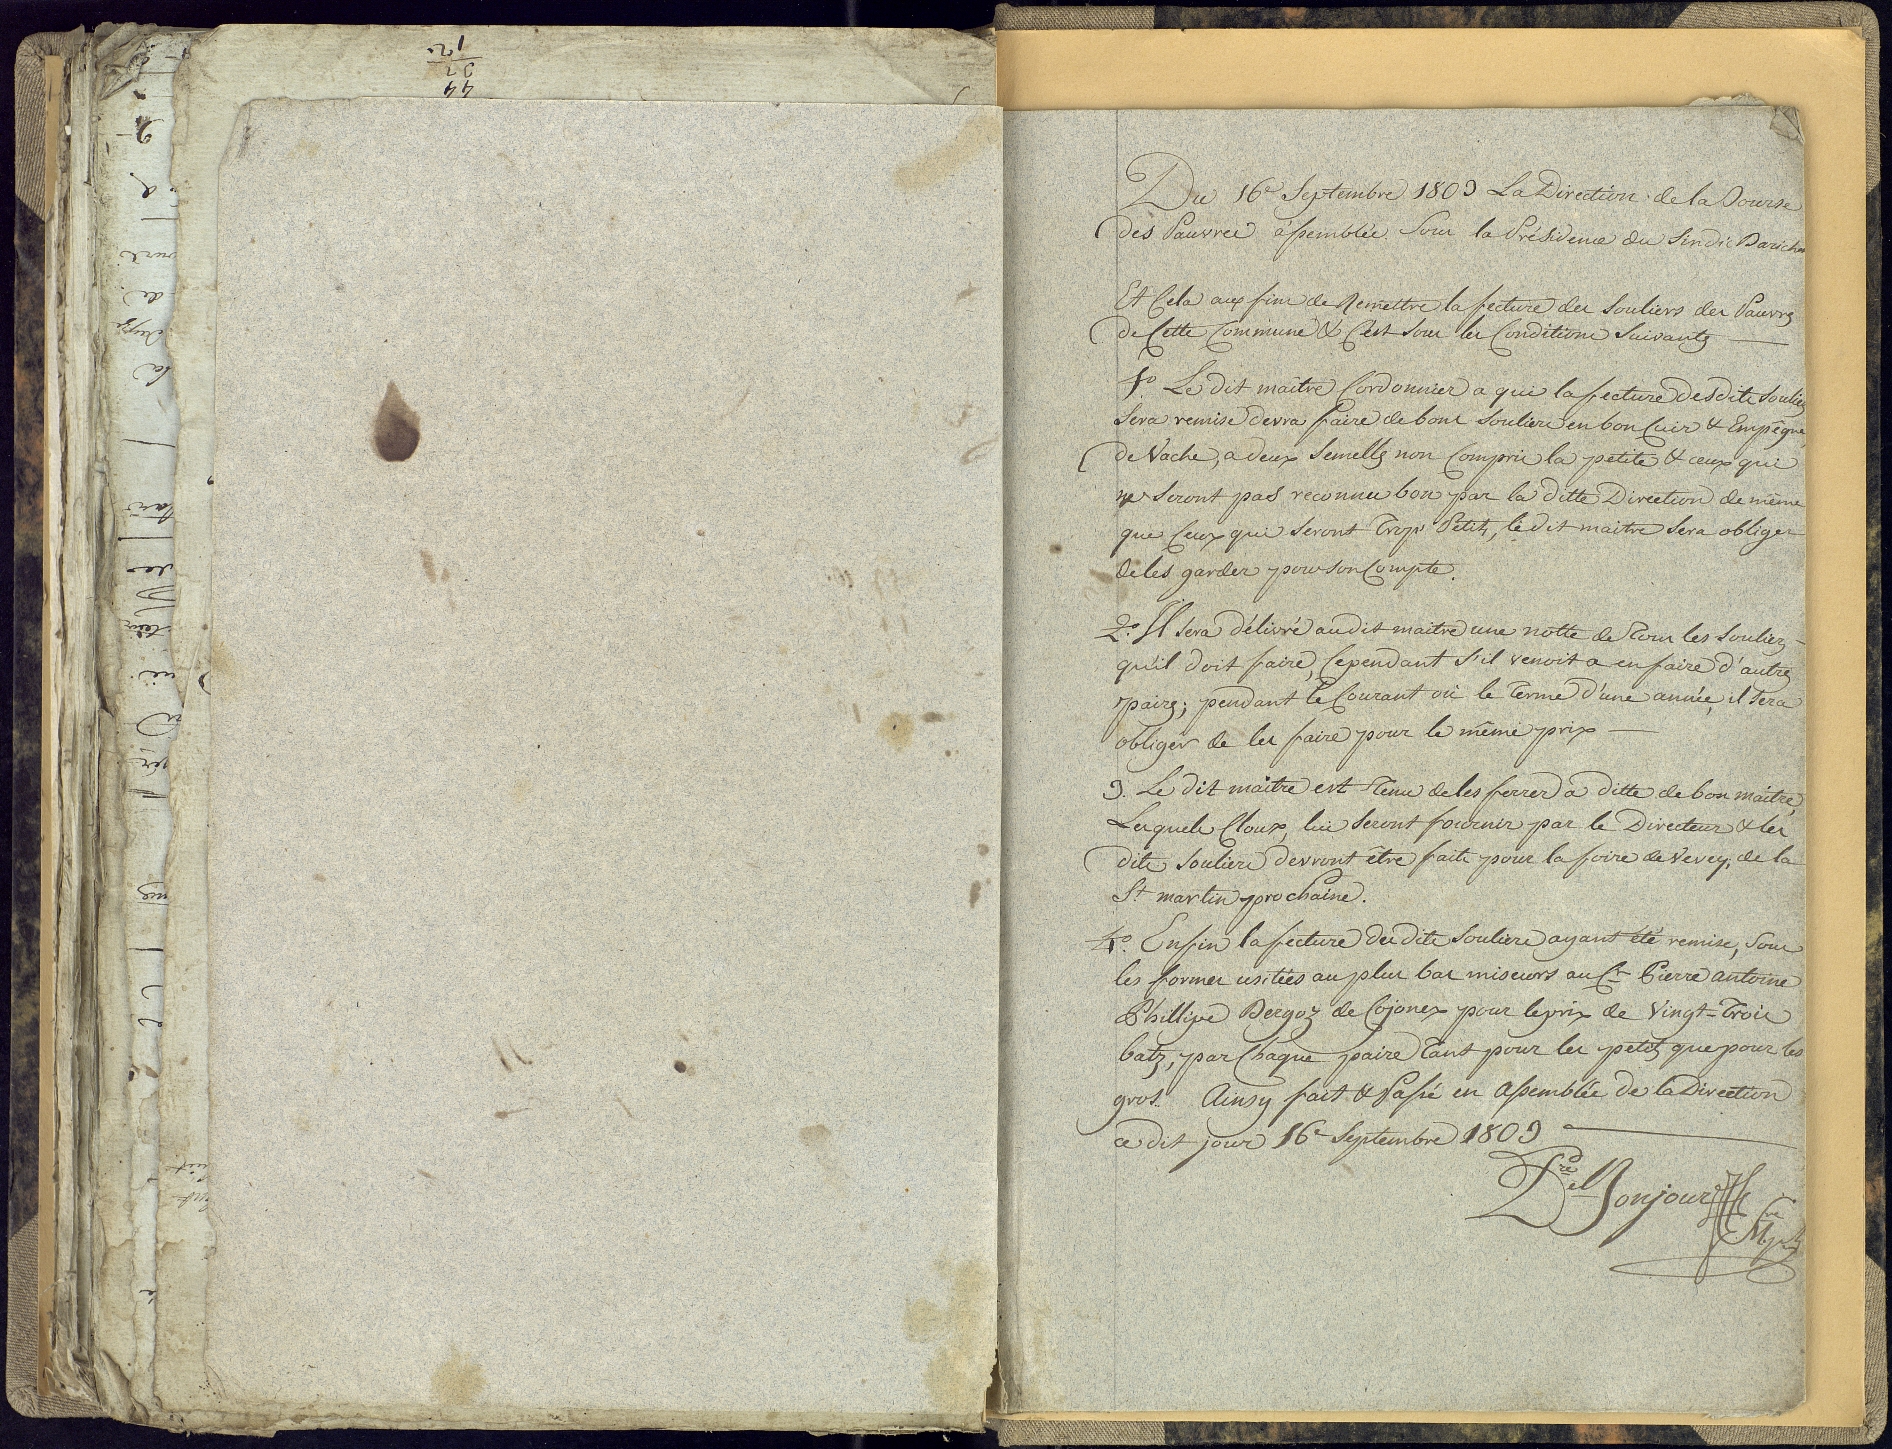 Du 16e Septembre 1803 La Direction de la Bourse
dès Pauvres assemblée Sous la Présidence du Sindic Darichon
Et Cela aux fins de Remettre la fecture des Souliers des Pauvres
de Cette Commune & C'est sous les Conditions Suivantes —
1o Le dit maître Cordonnier a qui la fecture desdits Souliers
Sera remise devra faire de bons Souliers en bon Cuir & Empégne
de Vache, a deux Semelles non Compris la petite & ceux qui
ne Seront pas reconnus bon par la ditte Direction de même
que Ceux qui seront Trop Petits, le dit maitre Sera obliger
de les garder pour son Compte.
2o. Il sera délivré audit maitre une notte de Tous les Souliers
qu'il doit faire, Cependant s'il venoit a en faire d'autres
paires; pendant le Courant ou le Terme d'une année, il Sera
obliger de les faire pour le même prix —
3. Le dit maître est Tenu de les ferrer a ditte de bon maître,
Lesquels Cloux, lui Seront fournir par le Directeur & les
dits Souliers devront être faits pour la foire de Vevey, de la
St martin prochaine.
4o. Enfin la fecture des dits Souliers ayant été remise, Sous
les formes usitées au plus bas miseurs au Cn Pierre antoine
Phillipe Bergoz de Cojonex pour le prix de Vingt-Trois
batz, par Chaque paire Tant pour les petits que pour les
gros. Ainsy fait & Passé en Assemblée de la Direction
ce dit jour 16e Septembre 1803 —
Pre el Bonjour
44